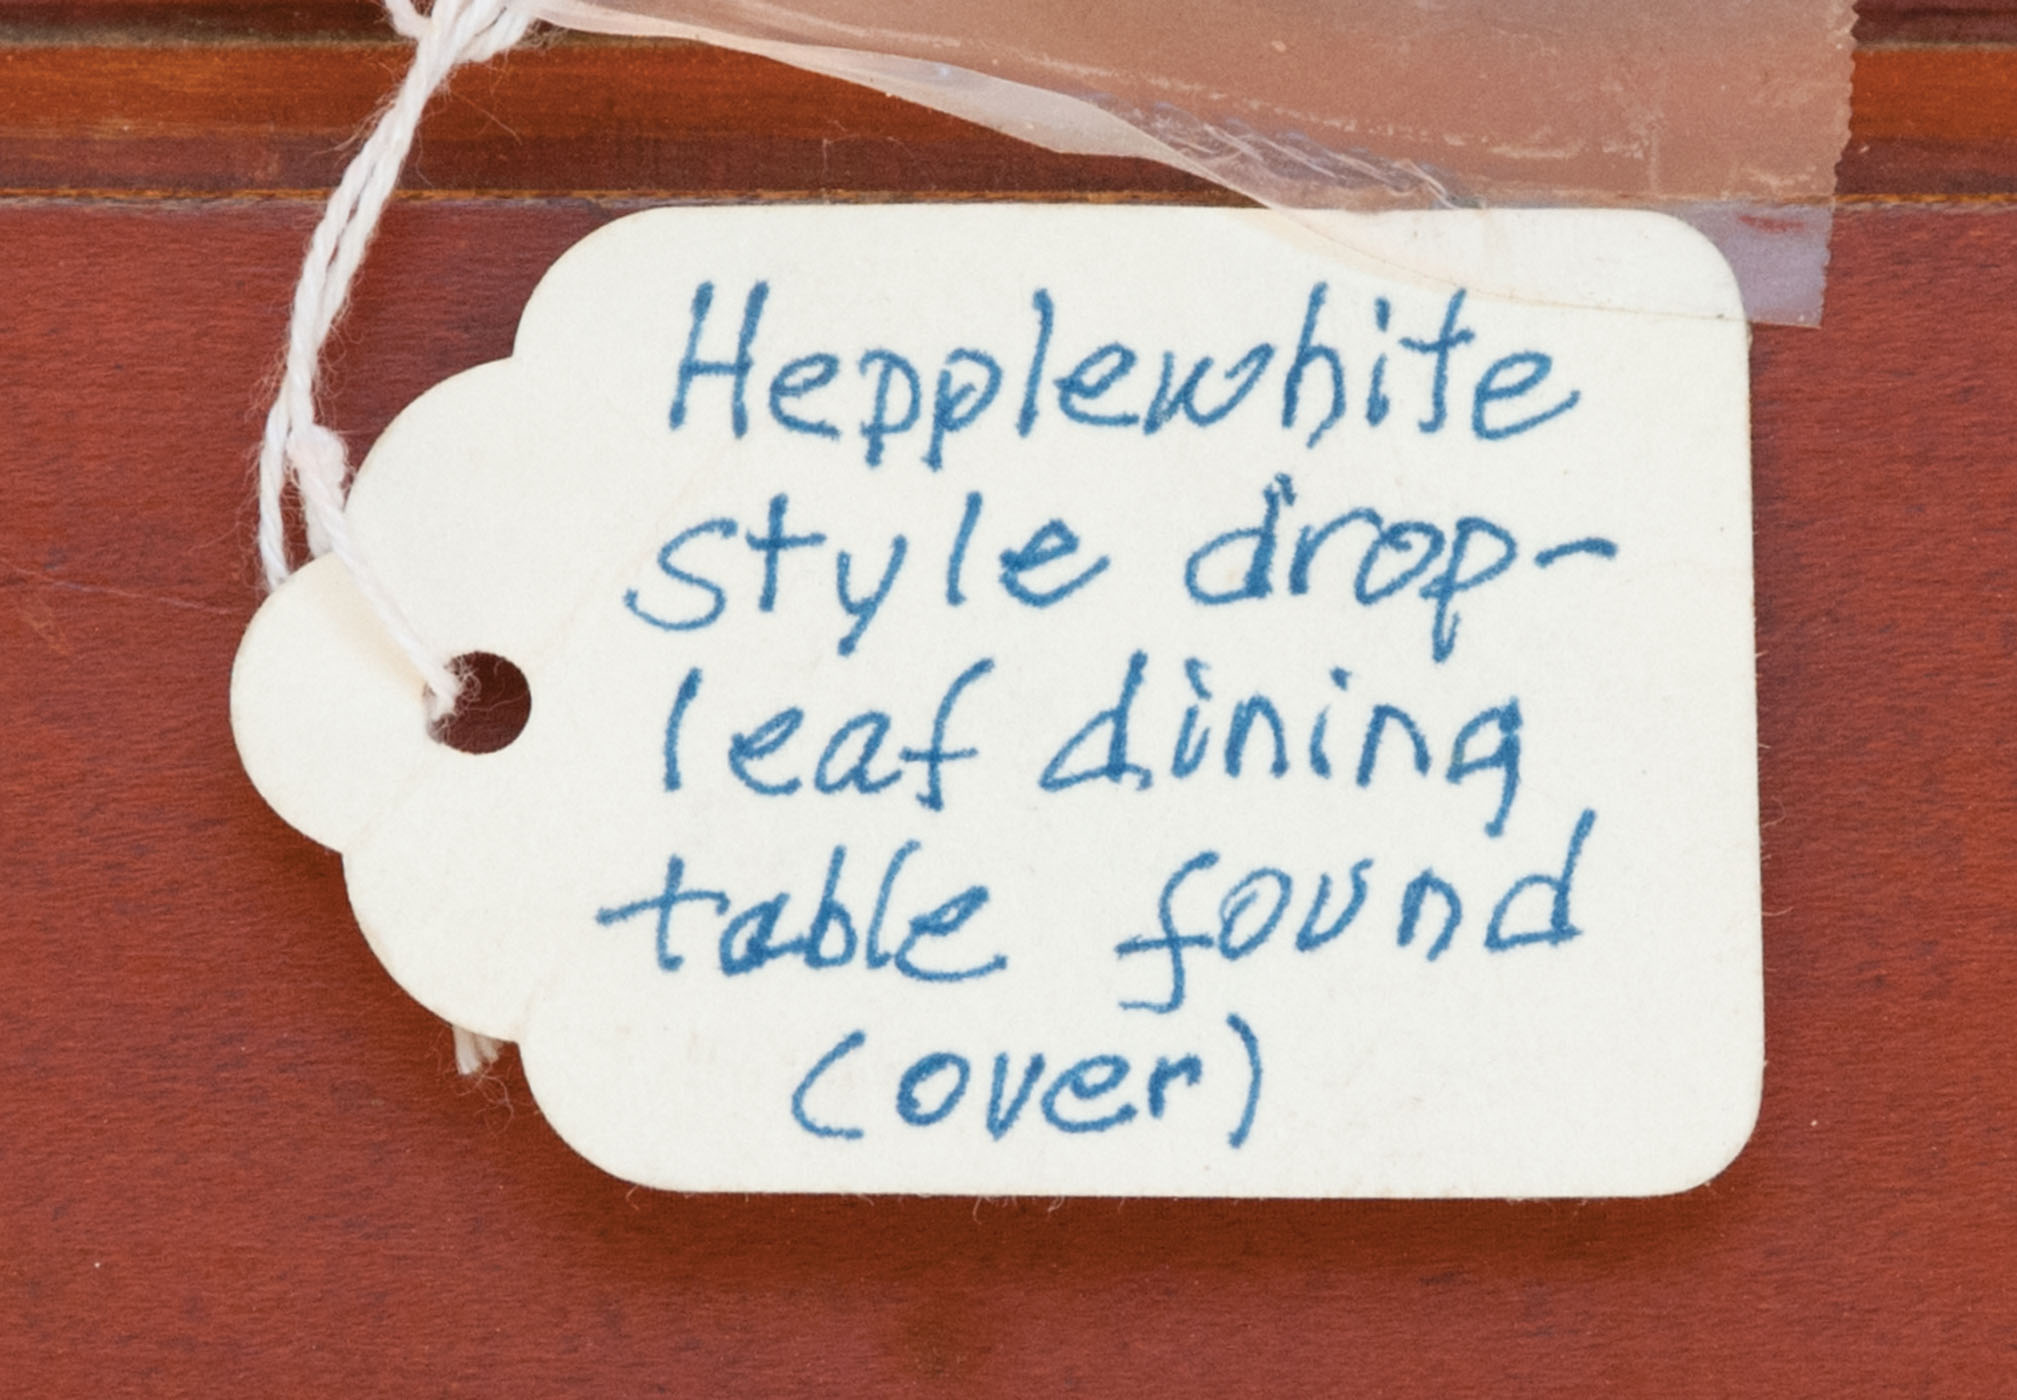 Hepplewhite
style drop-
leaf dining
table found
(over)